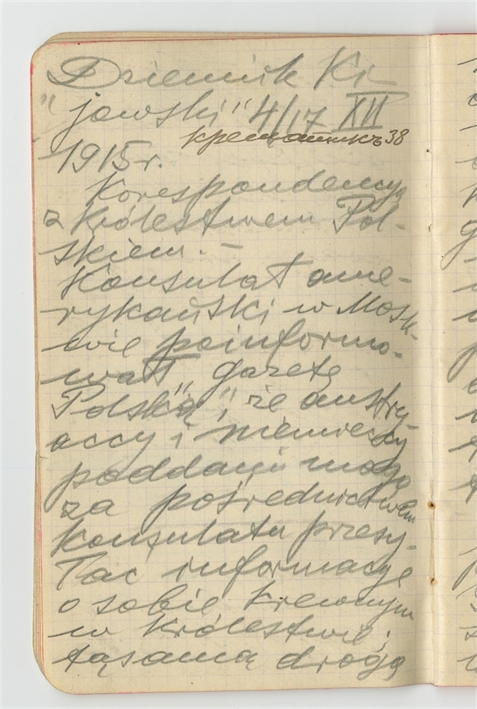 Dziennik Ki
"jowski" 4/17 XII
крещатикъ 38
1915 r.
Korespondencya
z Królestwem Pol-
skiem. –
Konsulat ame-
rykański w Mosk-
wie poinformo-
wał „gazetę
Polską", że austry-
accy i niemieccy
poddani mogą
za pośrednictwem
konsulatu przesy-
łać informacje
o sobie krewnym
w Królestwie;
tąsamą drogą